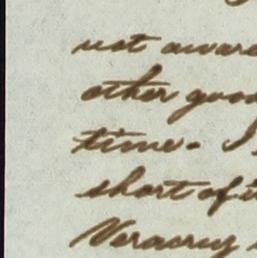 not aware
other good
time. I
short of i
Veracruz